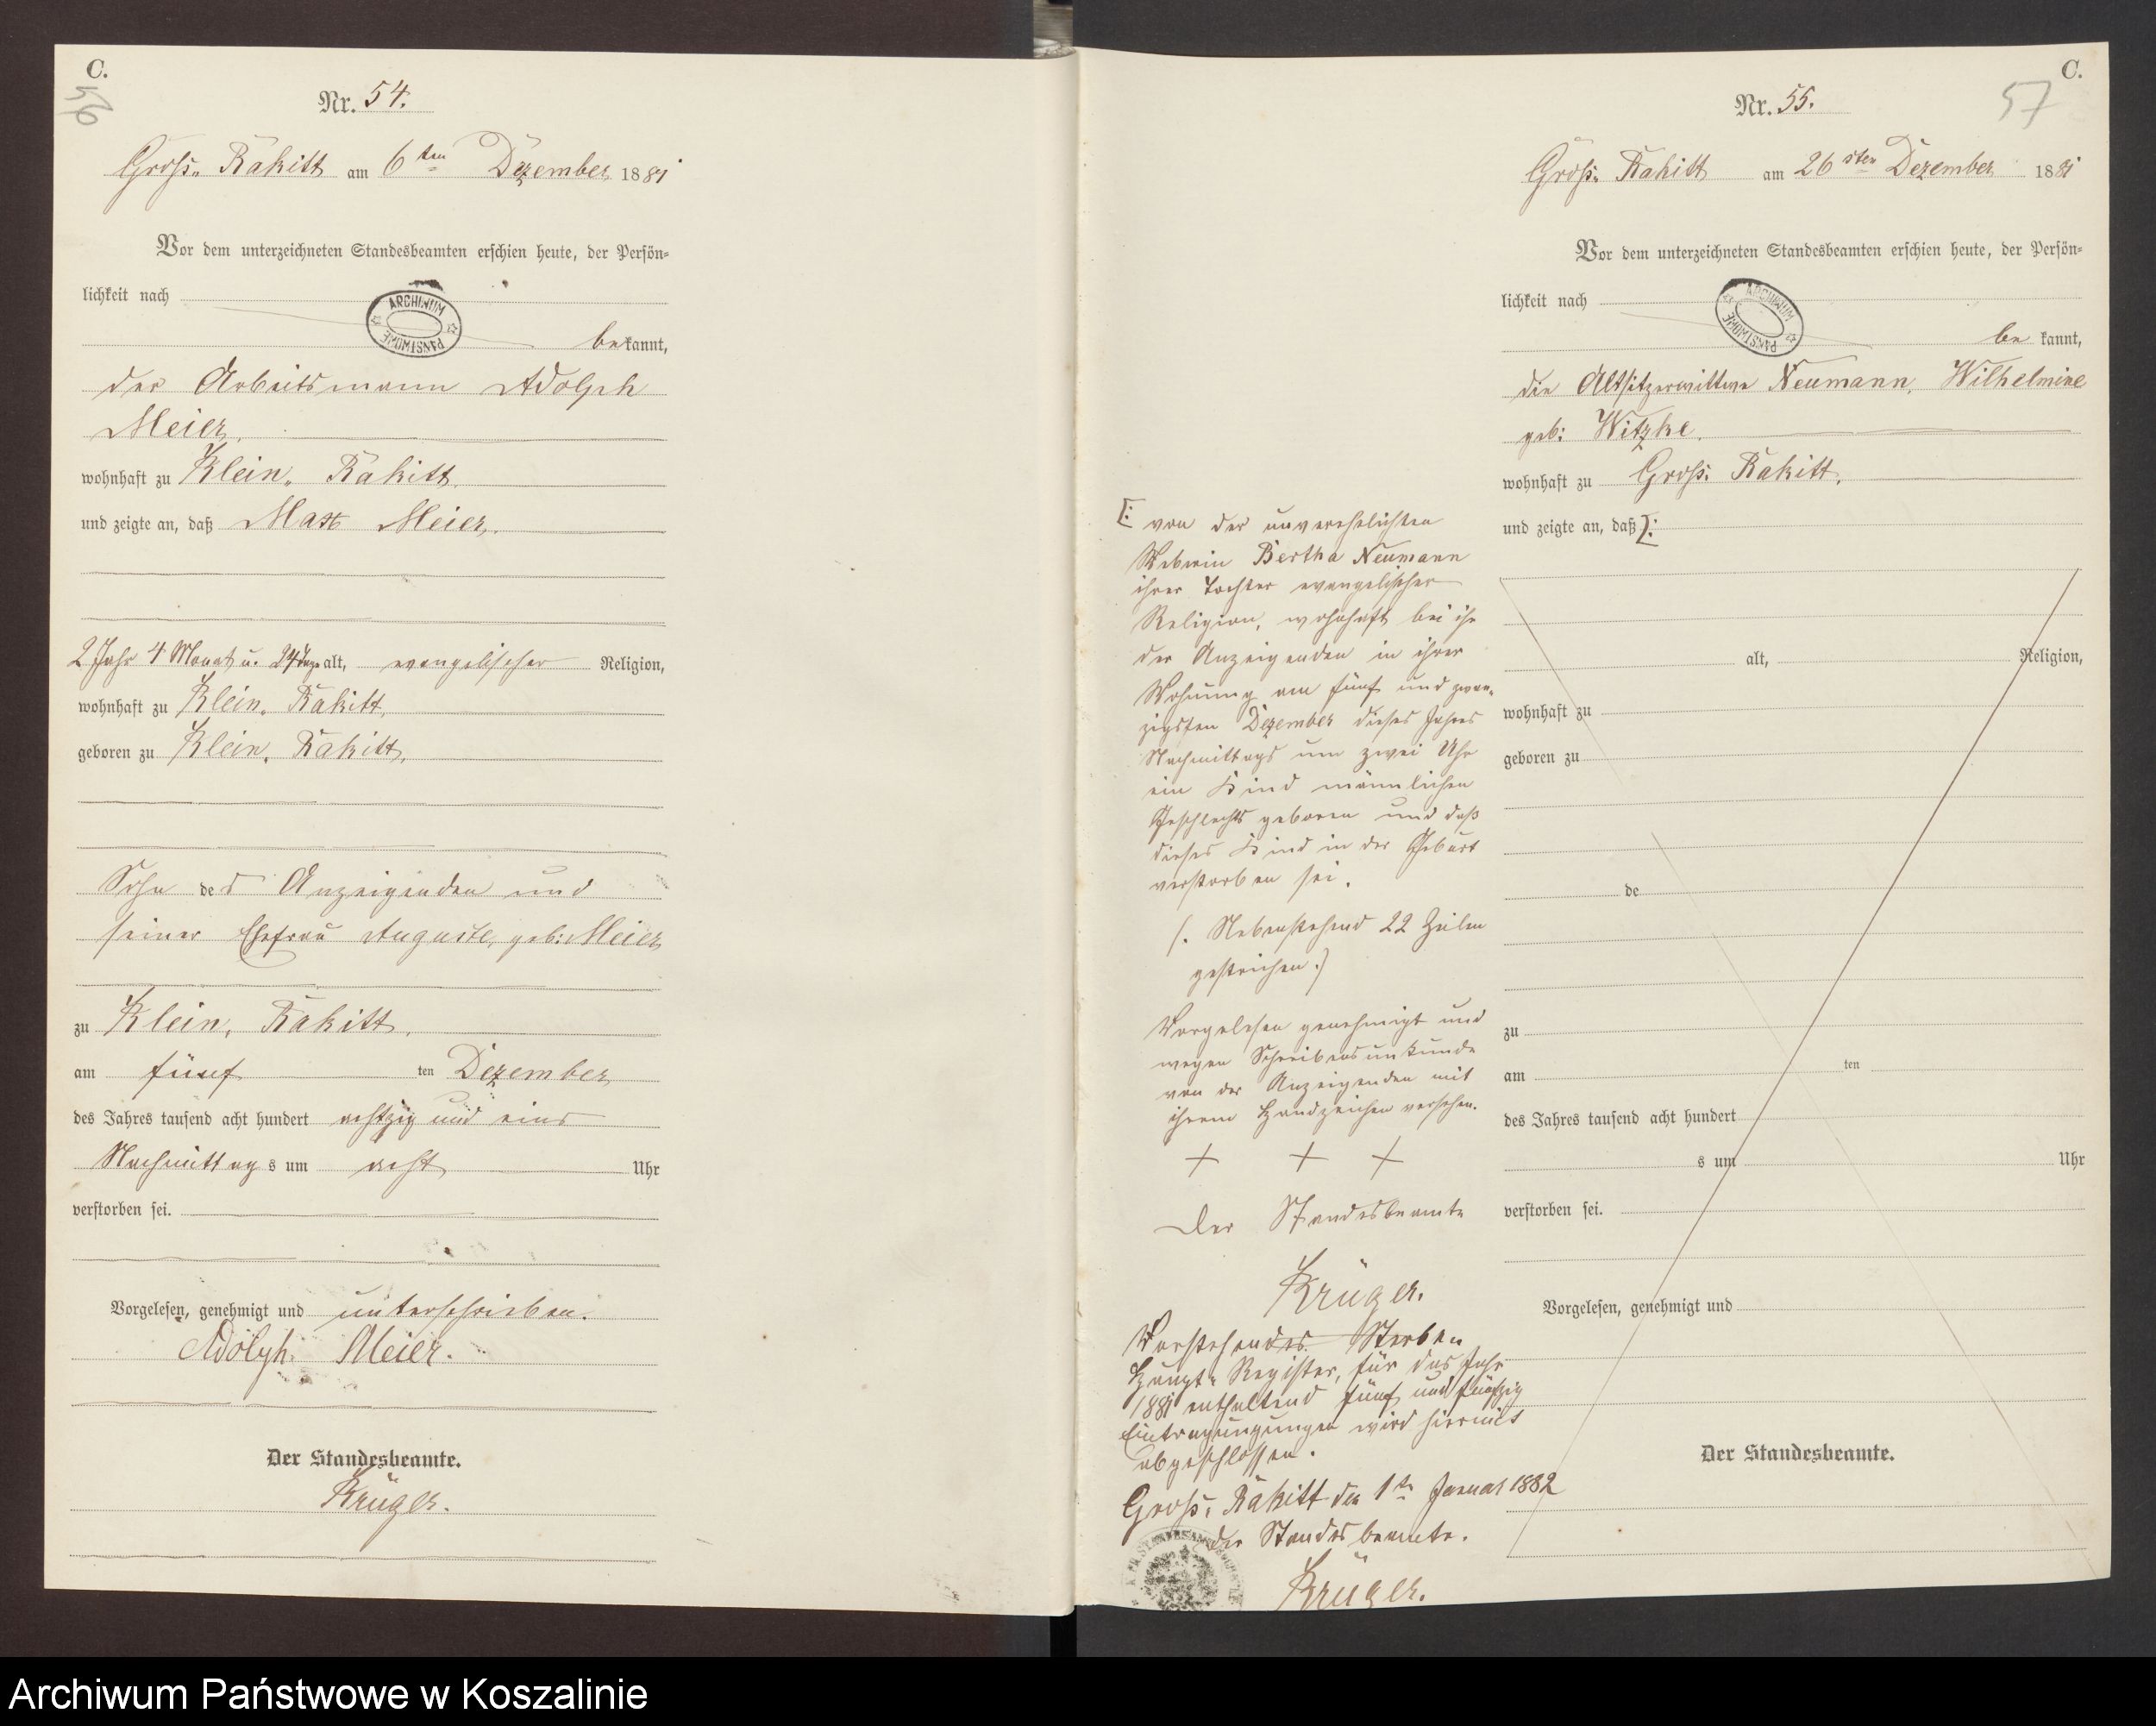 C.
56
Nr. 54.
Groß. Rakitt am 6ten Dezember 1881
Vor dem unterzeichneten Standesbeamten erschien heute, der Persön-
lichkeit nach
ARCHIWUM PAŃSTWOWE
bekannt,
der Arbeitsmann Adolph
Meier,
wohnhaft zu Klein. Rakitt.
und zeigte an, daß Max Meier,
2 Jahr 4 Monat u. 24 Tage alt, evangelischer Religion,
wohnhaft zu Klein. Rakitt,
geboren zu Klein. Rakitt,
Sohn des Anzeigenden und
seiner Ehefrau Auguste, geb: Meier
zu Klein. Rakitt,
am fünf ten Dezember
des Jahres tausend acht hundert achtzig und eins
Nachmittags um acht Uhr
verstorben sei.
Vorgelesen, genehmigt und unterschrieben.
Adolph Meier.
Der Standesbeamte.
Krüger.
C.
57
Nr. 55.
Groß. Rakitt am 26sten Dezember 1881
Vor dem unterzeichneten Standesbeamten erschien heute, der Persön-
lichkeit nach
ARCHIWUM PAŃSTWOWE
be kannt,
die Altsitzerwittwe Neumann, Wilhelmine
geb: Witzke,
wohnhaft zu Groß: Rakitt,
und zeigte an, daß [:
[: von der unverehelichten
Weberin Bertha Neumann
ihrer Tochter evangelischer
Religion, wohnhaft bei ihr
der Anzeigenden in ihrer
Wohnung am fünf und zwan-
zigsten Dezember dieses Jahres
Nachmittags um zwei Uhr
ein Kind männlichen
Geschlechts geboren und daß
dieses Kind in der Geburt
verstorben sei.
(. Nebenstehend 22 Zeilen
gestrichen.)
Vorgelesen genehmigt und
wegen Schreibensunkunde
von der Anzeigenden mit
ihrem Handzeichen versehen.
+ + +
Der Standesbeamte
Krüger.
Vorstehendes Sterbe
Haupt-Register, für das Jahr
1881 enthaltend fünf und fünfzig
Eintragungen wird hiermit
abgeschlossen.
Groß. Rakitt den 1ten Januar 1882
Der Standesbeamte.
Krüger.
alt, Religion,
wohnhaft zu
geboren zu
de
zu
am ten
des Jahres tausend acht hundert
s um Uhr
verstorben sei.
Vorgelesen, genehmigt und
Der Standesbeamte.
Archiwum Państwowe w Koszalinie